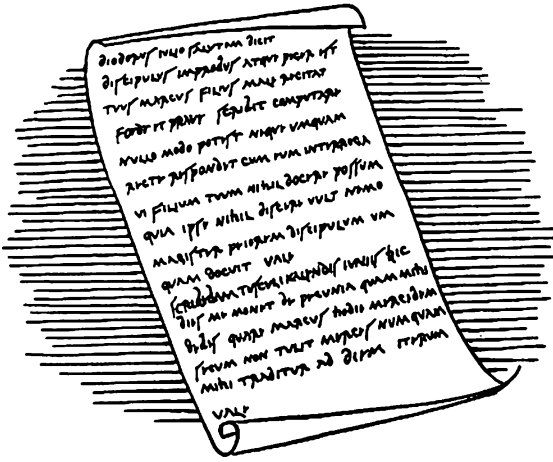 diodorus iulio salutem dicit
discipulus improbus atque piger est
tuus marcus filius male recitat
foede et prave scribit computare
nullo modo potest neque umquam
recte respondet cum eum interroga
vi filium tuum nihil docere possum
quia ipse nihil discere vult nemo
magister peiorem discipulum um
quam docuit vale
scribebam tusculi kalendis iuniis hic
dies me monet de pecunia quam mihi
debes quare marcus hodie mercedem
secum non tulit merces numquam
mihi traditur ad diem iterum
vale